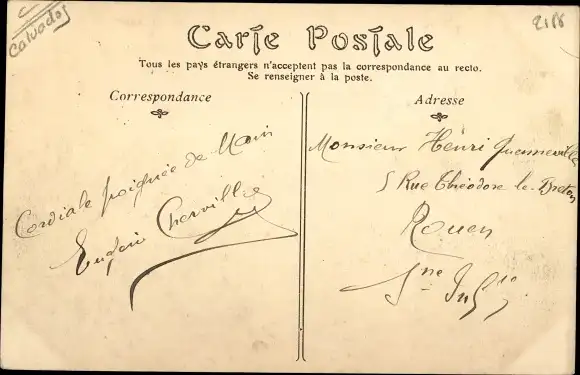 Calvados
2118
Carte Postale
Tous les pays étrangers n'acceptent pas la correspondance au recto.
Se renseigner à la poste.
Correspondance
Cordiale poignée de Main
Eugène Cherville
Adresse
Monsieur Henri Quenneville
5 Rue Théodore le Breton
Rouen
Sne Infre